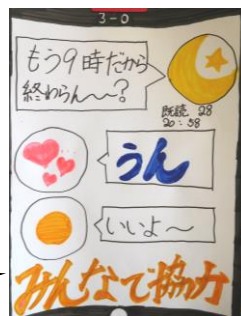 3-0
もう9時だから
終わらん〜〜?
既読 28
20:58
うん
いいよ〜
みんなで協力